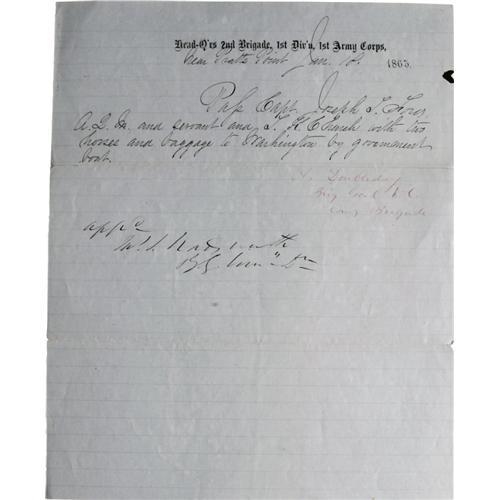 Head-Q'rs 2nd Brigade, 1st Div'n, 1st Army Corps,
Near Pratts Point Jan. 1863.
Pass Capt. Joseph T.
A.Q.M. and servant and L. K. Church with two
horses and baggage to Washington by government
boat.
A. Doubleday
Brig Genl V.
Comg Brigade
app'd
Wadsworth
B.G.